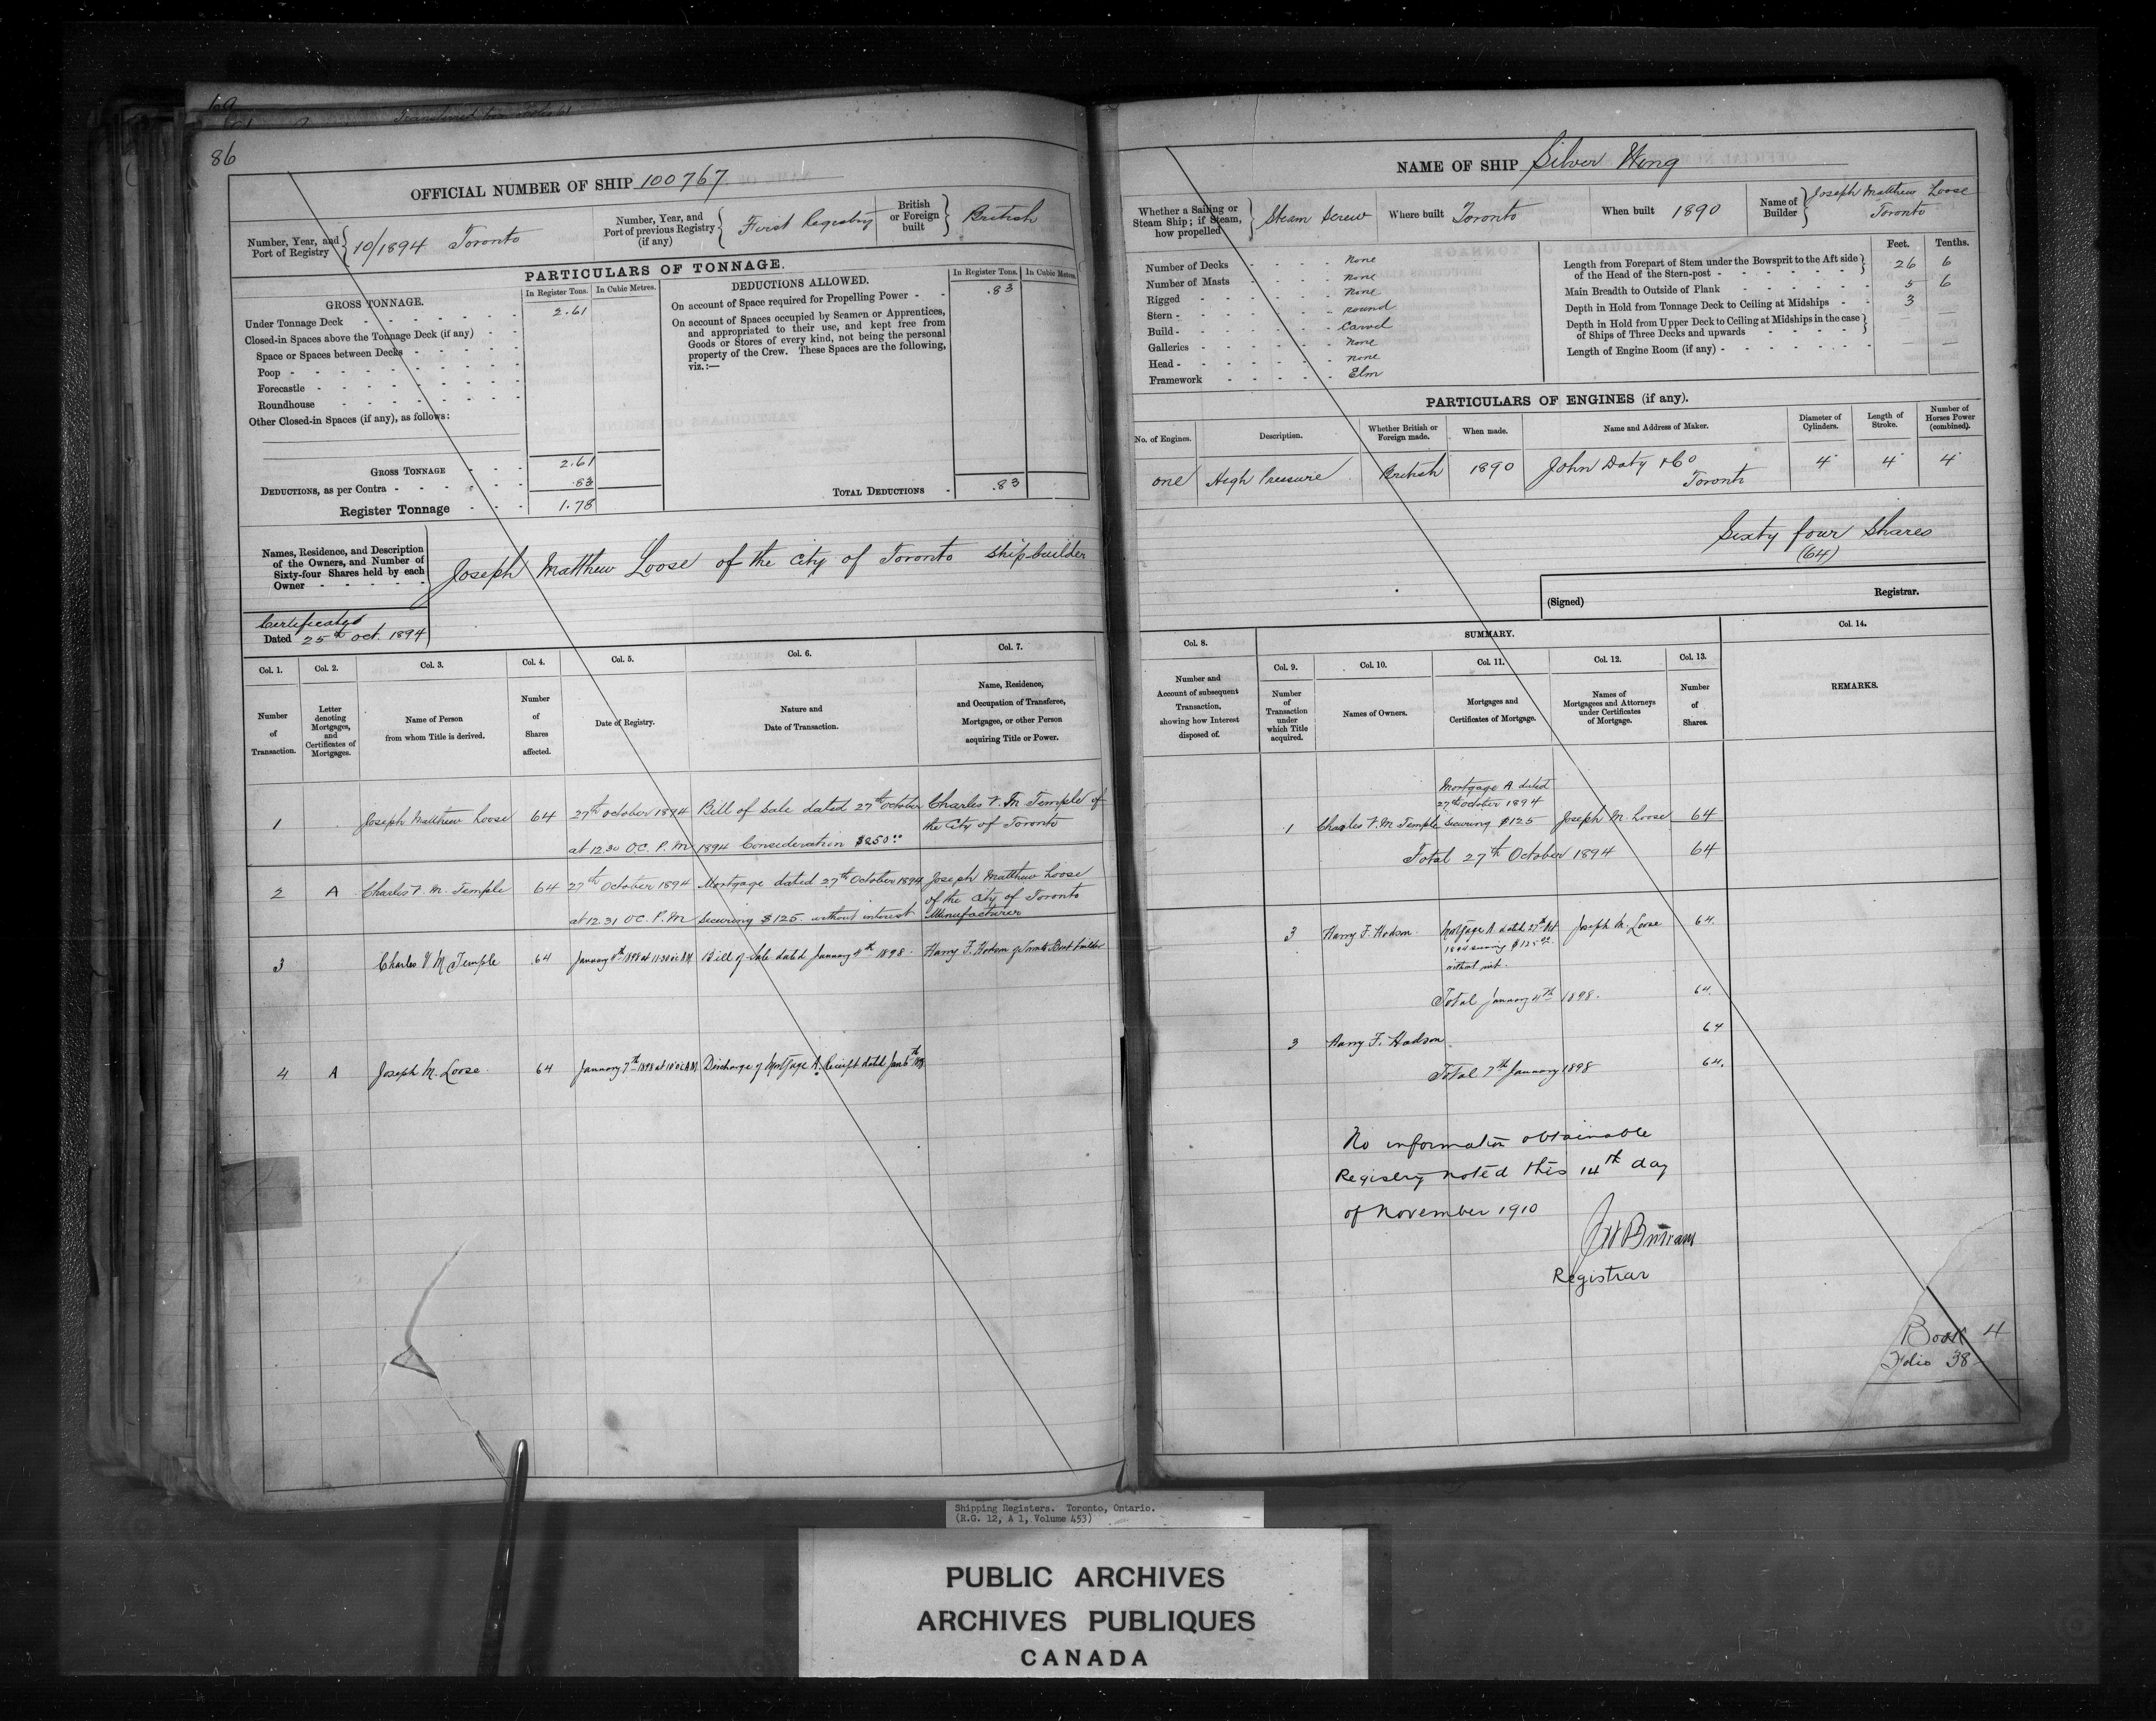 86
OFFICIAL NUMBER OF SHIP 100767
Number, Year, and Port of Registry 10/1894 Toronto
Number, Year, and Port of previous Registry (if any) First Registry
British or Foreign built British
PARTICULARS OF TONNAGE.
GROSS TONNAGE.
In Register Tons.
In Cubic Metres.
Under Tonnage Deck 2.61
Closed-in Spaces above the Tonnage Deck (if any)
Space or Spaces between Decks
Poop
Forecastle
Roundhouse
Other Closed-in Spaces (if any), as follows:
GROSS TONNAGE 2.61
DEDUCTIONS, as per Contra .83
Register Tonnage 1.78
DEDUCTIONS ALLOWED.
In Register Tons.
In Cubic Metres.
On account of Space required for Propelling Power .83
On account of Spaces occupied by Seamen or Apprentices,
and appropriated to their use, and kept free from
Goods or Stores of every kind, not being the personal
property of the Crew. These Spaces are the following,
viz.:—
TOTAL DEDUCTIONS .83
Names, Residence, and Description
of the Owners, and Number of
Sixty-four Shares held by each
Owner
Joseph Matthew Loose of the City of Toronto Ship-builder
Dated 25th Oct. 1894
Col. 1. Col. 2. Col. 3. Col. 4. Col. 5. Col. 6. Col. 7.
Number of Transaction.
Letter denoting Mortgages, and Certificates of Mortgages.
Name of Person from whom Title is derived.
Number of Shares affected.
Date of Registry.
Nature and Date of Transaction.
Name, Residence, and Occupation of Transferee, Mortgagee, or other Person acquiring Title or Power.
1 Joseph Matthew Loose 64 27th October 1894 Bill of Sale dated 27th October Charles V. M Temple of
at 12.30 O.C. P.M 1894 Consideration $250.00 the City of Toronto
2 A Charles V. M. Temple 64 27th October 1894 Mortgage dated 27th October 1894 Joseph Matthew Loose
of the City of Toronto
at 12.31 O.C. P.M securing $125. without interest Manufacturer
3 Charles V. M Temple 64 January 4th 1898 at 11.30 oc AM Bill of Sale dated January 4th 1898. Harry F. Hodson of Toronto Boat builder
4 A Joseph M. Loose. 64 January 7th 1898 at 10 oc AM. Discharge of Mortgage A. Receipt dated Jan 6th 1898
NAME OF SHIP Silver Wing
Whether a Sailing or Steam Ship; if Steam, how propelled Steam Screw
Where built Toronto
When built 1890
Name of Builder Joseph Matthew Loose
Toronto
Number of Decks none
Number of Masts none
Rigged none
Stern round
Build Carvel
Galleries none
Head none
Framework Elm
Feet. Tenths.
Length from Forepart of Stem under the Bowsprit to the Aft side
of the Head of the Stern-post 26 6
Main Breadth to Outside of Plank 5 6
Depth in Hold from Tonnage Deck to Ceiling at Midships 3
Depth in Hold from Upper Deck to Ceiling at Midships in the case
of Ships of Three Decks and upwards —
Length of Engine Room (if any) — —
PARTICULARS OF ENGINES (if any).
No. of Engines. Description. Whether British or Foreign made. When made. Name and Address of Maker. Diameter of Cylinders. Length of Stroke. Number of Horses Power (combined).
one High Pressure British 1890 John Doty & Co 4 4 4
Toronto
Sixty four Shares
(64)
(Signed) Registrar.
Col. 8. SUMMARY. Col. 14.
Col. 9. Col. 10. Col. 11. Col. 12. Col. 13.
Number and Account of subsequent Transaction, showing how Interest disposed of.
Number of Transaction under which Title acquired.
Names of Owners.
Mortgages and Certificates of Mortgage.
Names of Mortgagees and Attorneys under Certificates of Mortgage.
Number of Shares.
REMARKS.
Mortgage A dated
27th October 1894
1 Charles V. M Temple securing $125 Joseph M. Loose 64
Total 27th October 1894 64
3 Harry F. Hodson. Mortgage A dated 27th Oct Joseph M. Loose 64.
1894 securing $125.00
without int.
Total January 4th 1898. 64.
3 Harry F. Hodson 64
Total 7th January 1898 64.
No information obtainable
Registry noted this 14th day
of November 1910
Registrar
Book 4
Folio 38
Shipping Registers. Toronto, Ontario.
(R.G. 12, A 1, Volume 453)
PUBLIC ARCHIVES
ARCHIVES PUBLIQUES
CANADA